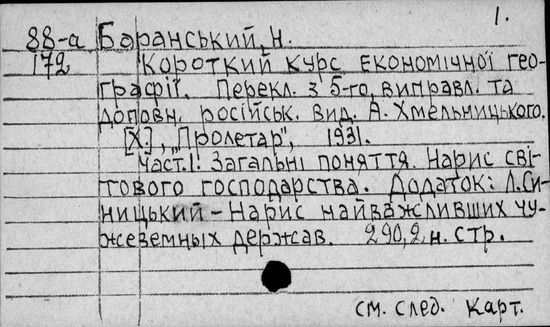 1.
88-а Баранський, Н.
172 Короткий курс економічної гео-
графії. Перекл. з 5-го, виправл. та
доповн. російськ. вид. А. Хмельницького.
[Х.], "Пролетар", 1931.
Част.1: Загальні поняття. Нарис сві-
тового господарства. Додаток: Л.Си-
ницький - Нарис найважливших чу-
жеземных держав. 290,2 н. стр.
см. след. карт.